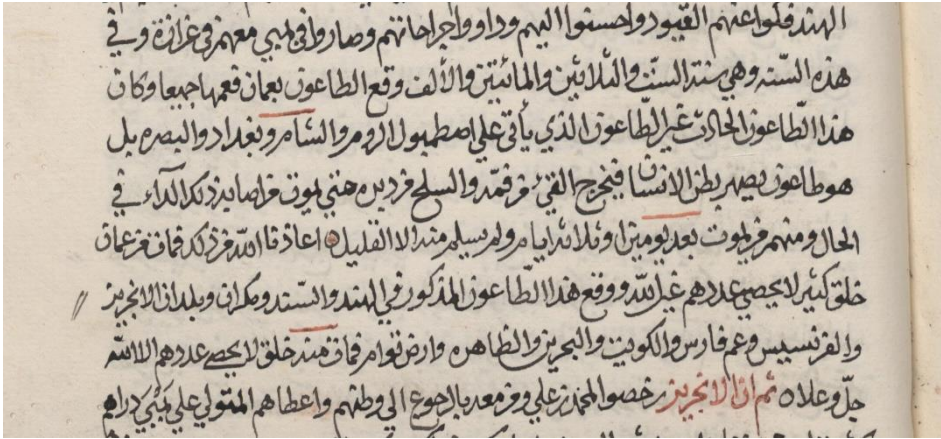 الهند فكوا عنهم القيود واحسنوا اليهم وداووا جراحاتهم وصاروا في بمبي معهم في عزازة وفي
هذه السّنه وهي سنة السّت والثلاثين والمائتين والألف وقع الطاعون بعمان فعمها جميعا وكان
هذا الطّاعون الحادث غير الطّاعون الذي يأتي علي اصطمبول الروم والشام وبغداد والبصره بل
هو طاعون يصهر بطن الانسان فيخرج القئ من فمّه والسلح من دبره حتي يموت فمن اصابه ذلك الدآء في
الحال ومنهم من يموت بعد يومين او ثلاثة ايام ولم يسلم منه الا القليل اعاذنا الله من ذلك فمات من عمان
خلق كثير لا يحصي عددهم غير الله ووقع هذا الطّاعون المذكور في الهند والسّند ومكران وبلدان الانجريز
والفرنسيس وعم فارس والكويت والبحرين والظاهره وارض توام فمات منه خلق لا يحصے عددهم الا الله
جلّ وعلا ثم ان الانجريز رخصوا لمحمد بن علي ومن معه بالرجوع الي وطنهم واعطاهم المتولي علي بمبي دراهم